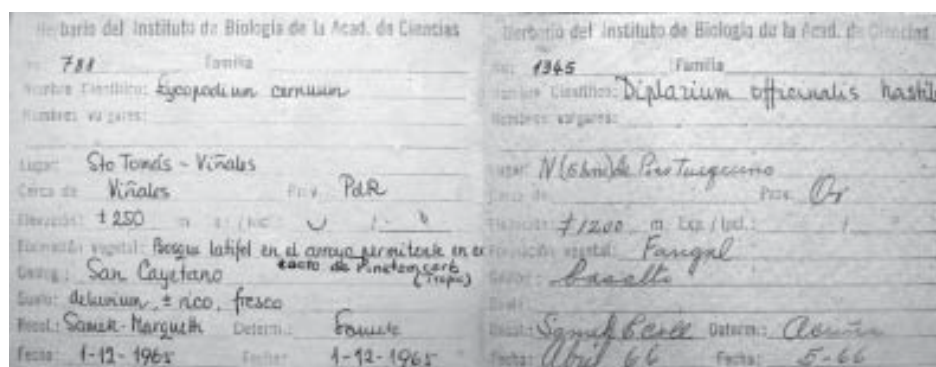 Herbario del Instituto de Biología de la Acad. de Ciencias
No. 788 Familia
Nombre Científico: Lycopodium cernuum
Nombres vulgares:
Lugar: Sto Tomás - Viñales
Cerca de Viñales Prov. PdR
Elevación: ± 250 m
Formación vegetal: Bosque latifol en el arroyo en
de Pinetum
(Tropic)
Geolog.: San Cayetano
Suelo: deluvium, ± rico, fresco
Recol.: Samek-Margueth Determ.: Samek
Fecha: 1-12-1965 Fecha: 1-12-1965
Herbario del Instituto de Biología de la Acad. de Ciencias
No. 1345 Familia
Nombre Científico: Diplazium officinalis
Nombres vulgares:
Lugar: N (6 km) de Pico Turquino
Cerca de Prov. Or
Elevación: ± 1200 m. Exp./Incl.: /
Formación vegetal: Fangal
Geolog.: basalto
Suelo:
Recol.: Samek Determ.: Acuña
Fecha: Abril 66 Fecha: 5-66